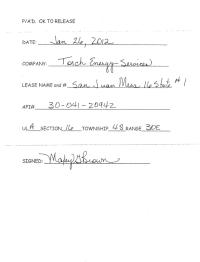 P/A'D. OK TO RELEASE
DATE: Jan 26, 2012
COMPANY: Torch Energy Services
LEASE NAME and # San Juan Mesa 16 State #1
API# 30-041-20942
UL A SECTION 16 TOWNSHIP 4S RANGE 30E
SIGNED: Brown